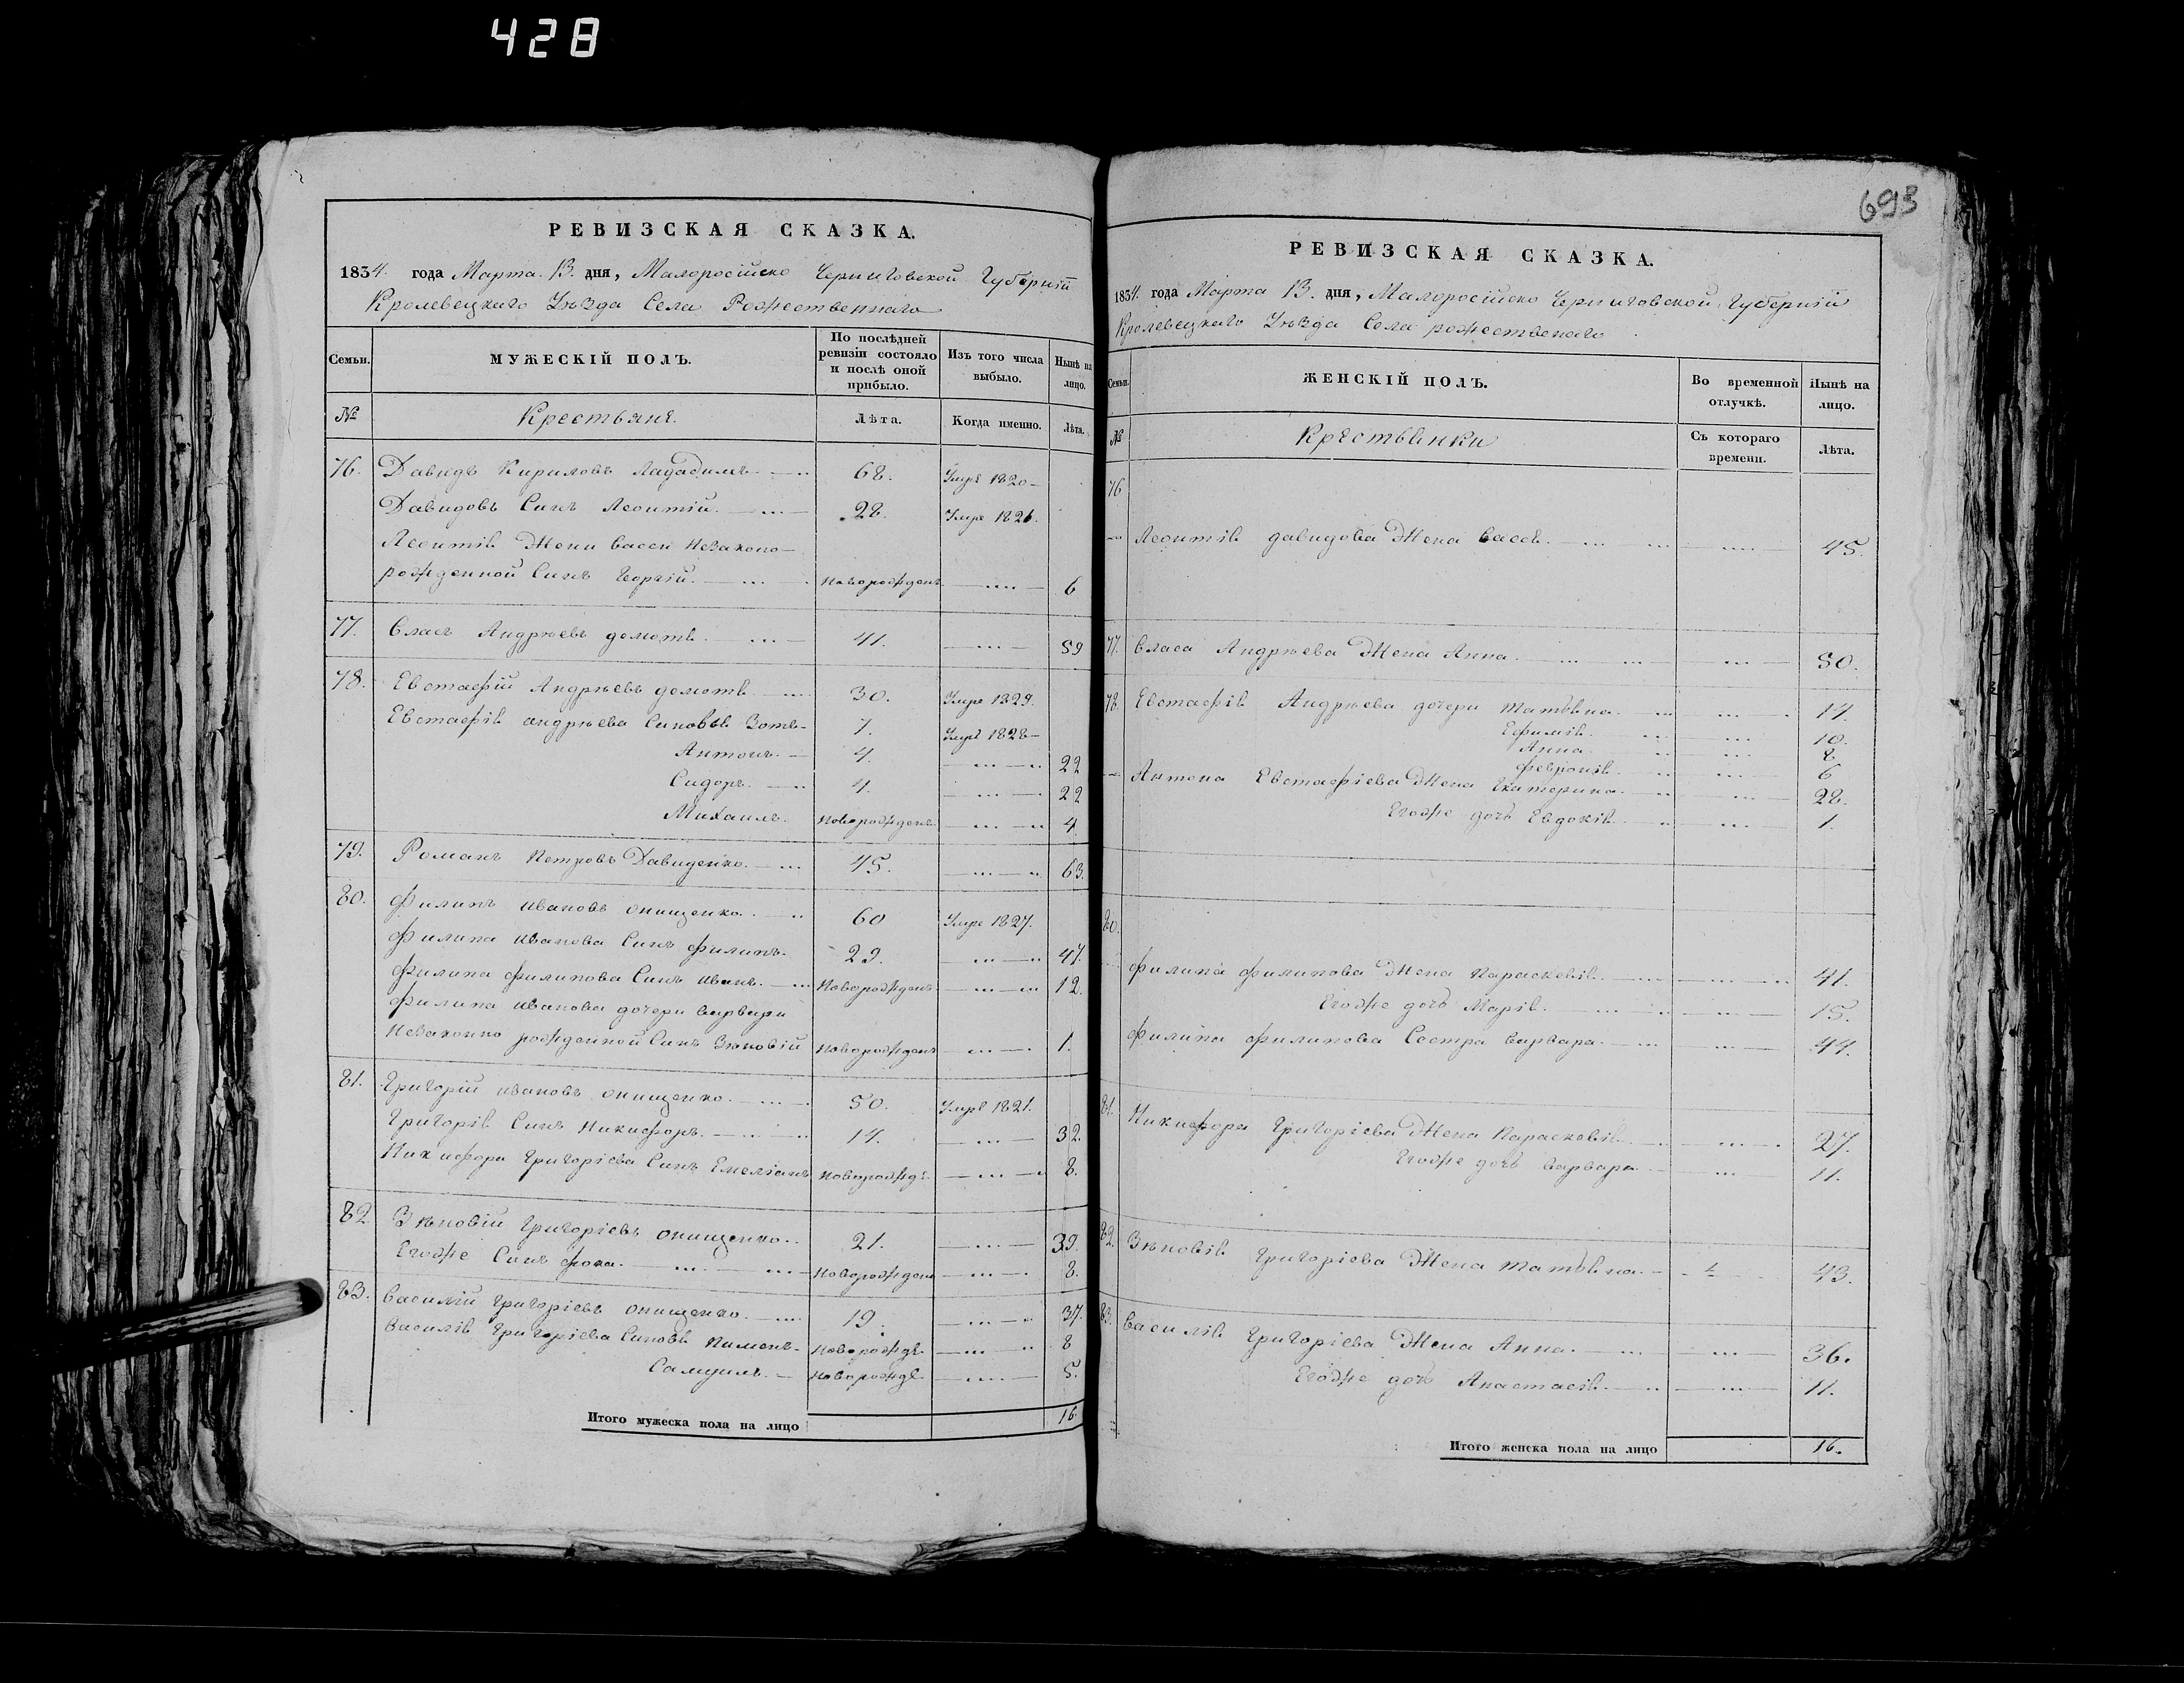 428
693
РЕВИЗСКАЯ СКАЗКА.
1834. года Марта 13. дня, Малоросійско Черниговской Губерніи
Кролевецкаго Уѣзда Села Рожественнаго
Семьи.
МУЖЕСКІЙ ПОЛЪ.
По послѣдней ревизіи состояло и послѣ оной прибыло.
Изъ того числа выбыло.
Нынѣ на лицо.
№
Крестьяне.
Лѣта.
Когда именно.
Лѣта.
76. Давидъ Кириловъ 68. Умре 1820
Давидовъ Синъ Леонтій. 28. Умре 1826.
Леонтія Жени Васси незаконо-
рожденной Синъ Георгій. новорожденъ 6
77. Власъ Андрѣевъ домотя 41. 59
78. Евстафій Андрѣевъ домотя 30. Умре 1829.
Евстафія андрѣева Синовья Зотъ 7. Умре 1828
Антонъ. 4. 22
Сидоръ. 4. 22
Михаилъ. новорожденъ 4.
79. Романъ Петровъ Давиденко. 45. 63.
80. Филипъ ивановъ онищенко. 60 Умре 1827.
Филипа иванова Синъ филипъ. 29. 47.
Филипа филипова Синъ иванъ. новорожденъ 12.
Филипа иванова дочери варвари
незаконно рожденной Синъ Зѣновій новорожденъ 1.
81. Григорій ивановъ онищенко. 50. Умре 1821.
Григорія Синъ Никифоръ. 14. 32.
Никифора Григоріева Синъ Емеліанъ новорожде 8.
82 Зѣновій Григоріевъ онищенко. 21. 39.
Егоже Синъ фока. новорожденъ 8.
83. Василій Григоріевъ онищенко. 19. 37.
Василія Григоріева Синовя Пименъ. новорожде 8
Самуилъ. новорожде 5.
Итого мужеска пола на лицо 16
РЕВИЗСКАЯ СКАЗКА.
1834. года Марта 13. дня, Малоросійско Черниговской Губерніи
Кролевецкаго Уѣзда Села рожественаго
Семьи.
ЖЕНСКІЙ ПОЛЪ.
Во временной отлучкѣ.
Нынѣ на лицо.
№
Крестьянки
Съ котораго времени.
Лѣта.
76
Леонтія давидова Жена Васса. 45.
77. Власа Андрѣева Жена Анна. 50.
78. Евстафія Андрѣева дочери татьяна. 14.
Ефимія. 10.
Анна. 8
Февронія. 6
Антона Евстафіева Жена Екатерина. 28.
Егоже дочь Евдокія. 1.
80.
филипа филипова Жена Параскевія. 41.
Егоже дочь Марія. 15.
филипа филипова Сестра варвара. 44.
81. Никифора Григоріева Жена Парасковія. 27.
Егоже дочь варвара. 11.
82. Зѣновія Григоріева Жена татьяна. 43.
83. Василія Григоріева Жена Анна. 36.
Егоже дочь Анастасія. 11.
Итого женска пола на лицо 16.